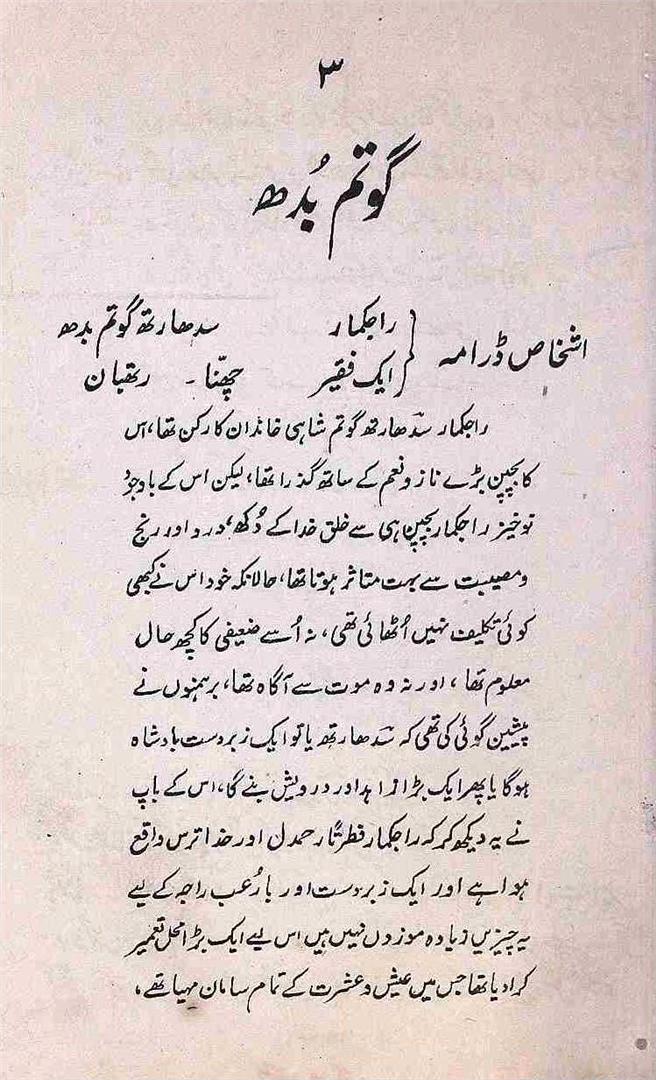 ۳
گوتم بُدھ
اشخاص ڈرامہ { راجکمار سدھارتھ گوتم بدھ
ایک فقیر چھنّا۔ رتھبان
راجکمار سدھارتھ گوتم شاہی خاندان کا رکن تھا، اس
کا بچپن بڑے ناز و نعم کے ساتھ گذرا تھا، لیکن اس کے باوجود
نوخیز راجکمار بچپن ہی سے خلق خدا کے دُکھ، درد اور رنج
و مصیبت سے بہت متاثر ہوتا تھا، حالانکہ خود اس نے کبھی
کوئی تکلیف نہیں اُٹھائی تھی، نہ اُسے ضعیفی کا کچھ حال
معلوم تھا، اور نہ وہ موت سے آگاہ تھا، برہمنوں نے
پیشین گوئی کی تھی کہ سدھارتھ یا تو ایک زبردست بادشاہ
ہوگا یا پھر ایک بڑا زاہد اور درویش بنے گا، اس کے باپ
نے یہ دیکھ کر کہ راجکمار فطرتًا رحمدل اور خدا ترس واقع
ہوا ہے اور ایک زبردست اور بارُعب راجہ کے لیے
یہ چیزیں زیادہ موزوں نہیں ہیں اس لیے ایک بڑا محل تعمیر
کرا دیا تھا جس میں عیش و عشرت کے تمام سامان مہیا تھے،